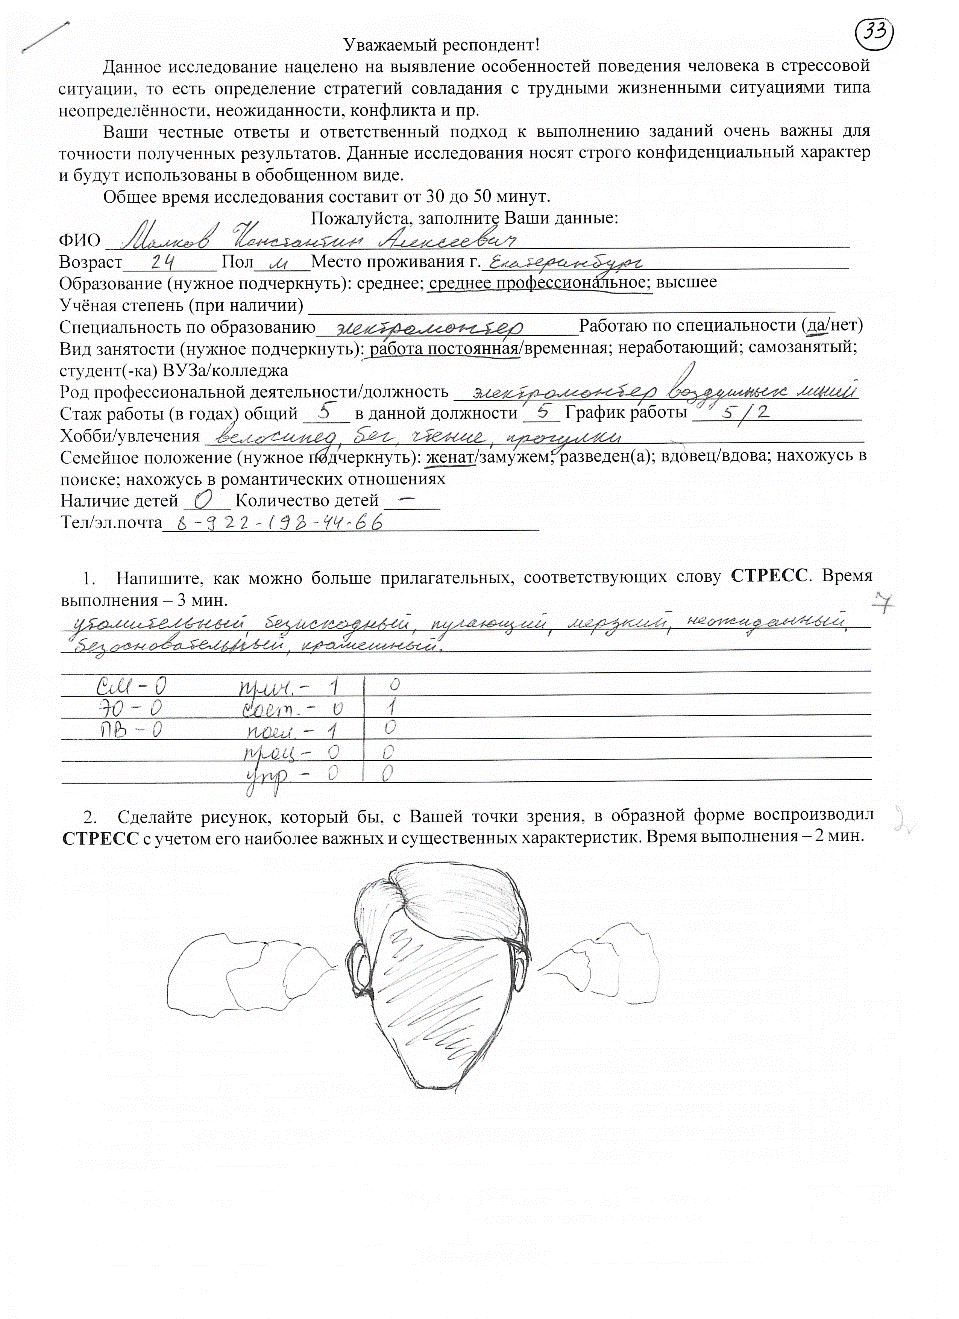 33
Уважаемый респондент!
Данное исследование нацелено на выявление особенностей поведения человека в стрессовой
ситуации, то есть определение стратегий совладания с трудными жизненными ситуациями типа
неопределённости, неожиданности, конфликта и пр.
Ваши честные ответы и ответственный подход к выполнению заданий очень важны для
точности полученных результатов. Данные исследования носят строго конфиденциальный характер
и будут использованы в обобщенном виде.
Общее время исследования составит от 30 до 50 минут.
Пожалуйста, заполните Ваши данные:
ФИО Малков Константин Алексеевич
Возраст 24 Пол м Место проживания г. Екатеринбург
Образование (нужное подчеркнуть): среднее; среднее профессиональное; высшее
Учёная степень (при наличии)
Специальность по образованию электромонтер Работаю по специальности (да/нет)
Вид занятости (нужное подчеркнуть): работа постоянная/временная; неработающий; самозанятый;
студент(-ка) ВУЗа/колледжа
Род профессиональной деятельности/должность электромонтер воздушных линий
Стаж работы (в годах) общий 5 в данной должности 5 График работы 5/2
Хобби/увлечения велосипед, бег, чтение, прогулки
Семейное положение (нужное подчеркнуть): женат/замужем; разведен(а); вдовец/вдова; нахожусь в
поиске; нахожусь в романтических отношениях
Наличие детей 0 Количество детей —
Тел/эл.почта 8-922-198-44-66
1. Напишите, как можно больше прилагательных, соответствующих слову СТРЕСС. Время
выполнения – 3 мин.
7
утомительный, безисходный, пугающий, мерзкий, неожиданный,
безосновательный, кромешный.
СМ – 0 прич. – 1 0
ЭО – 0 сост. – 0 1
ПВ – 0 посл. – 1 0
проц – 0 0
упр. – 0 0
2. Сделайте рисунок, который бы, с Вашей точки зрения, в образной форме воспроизводил
СТРЕСС с учетом его наиболее важных и существенных характеристик. Время выполнения – 2 мин.